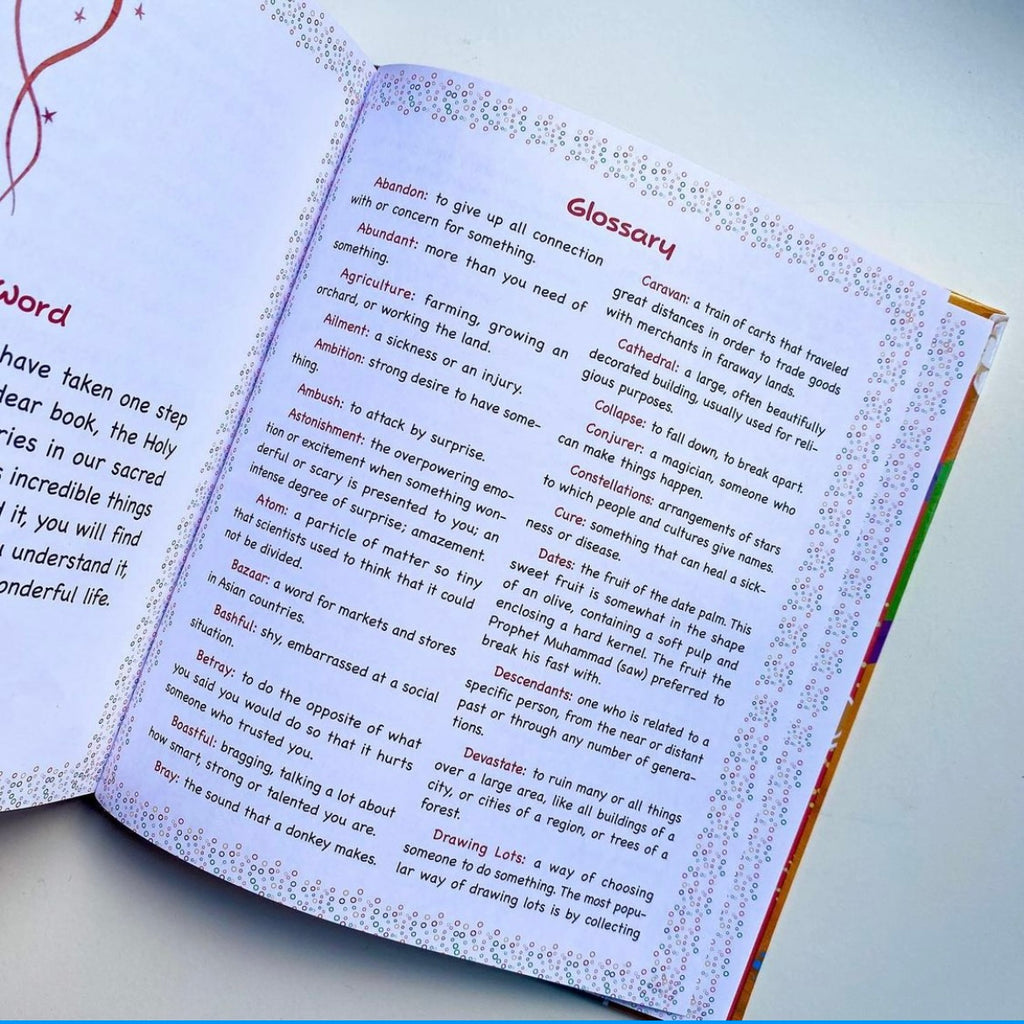 Word
have taken one step
dear book, the Holy
ries in our sacred
s incredible things
d it, you will find
u understand it,
onderful life.
Glossary
Abandon: to give up all connection
with or concern for something.
Abundant: more than you need of
something.
Agriculture: farming, growing an
orchard, or working the land.
Ailment: a sickness or an injury.
Ambition: strong desire to have some-
thing.
Ambush: to attack by surprise.
Astonishment: the overpowering emo-
tion or excitement when something won-
derful or scary is presented to you; an
intense degree of surprise; amazement.
Atom: a particle of matter so tiny
that scientists used to think that it could
not be divided.
Bazaar: a word for markets and stores
in Asian countries.
Bashful: shy, embarrassed at a social
situation.
Betray: to do the opposite of what
you said you would do so that it hurts
someone who trusted you.
Boastful: bragging, talking a lot about
how smart, strong or talented you are.
Bray: the sound that a donkey makes.
Caravan: a train of carts that traveled
great distances in order to trade goods
with merchants in faraway lands.
Cathedral: a large, often beautifully
decorated building, usually used for reli-
gious purposes.
Collapse: to fall down, to break apart.
Conjurer: a magician, someone who
can make things happen.
Constellations: arrangements of stars
to which people and cultures give names.
Cure: something that can heal a sick-
ness or disease.
Dates: the fruit of the date palm. This
sweet fruit is somewhat in the shape
of an olive, containing a soft pulp and
enclosing a hard kernel. The fruit the
Prophet Muhammad (saw) preferred to
break his fast with.
Descendants: one who is related to a
specific person, from the near or distant
past or through any number of genera-
tions.
Devastate: to ruin many or all things
over a large area, like all buildings of a
city, or cities of a region, or trees of a
forest.
Drawing Lots: a way of choosing
someone to do something. The most popu-
lar way of drawing lots is by collecting